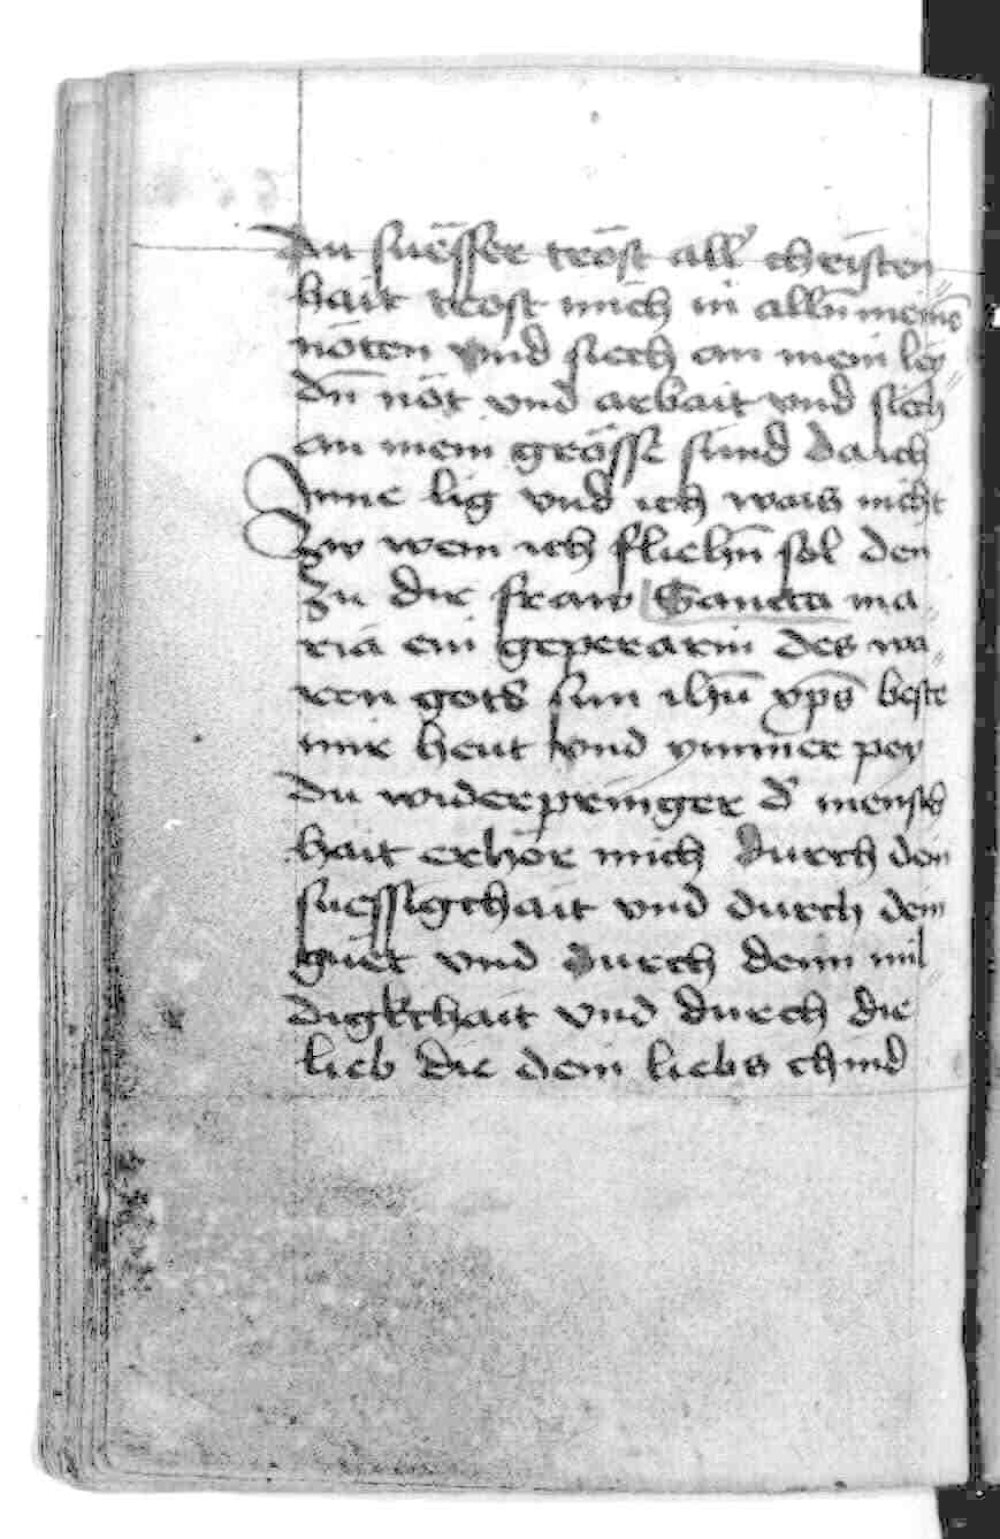 du suesser tröst all christen
hait tröst mich in alln meinē
nöten vnd siech an mein ley
dn̄ nöt vnd arbait vnd siech
an mein grösse sünd da ich
Inne lig vnd ich wais nicht
Zw wem ich fliehn̄ sol den
zu dir fraw Sancta ma
ria ein geperarin des wa
ren gots sun ihū xp̄s beste
mir heut vnd ymmer pey
du widerpringer d' mensch
hait erhör mich durch dein
suessigchait vnd durch dein
guet vnd durch dein mil
digkchait vnd durch die
lieb die dein liebs chind